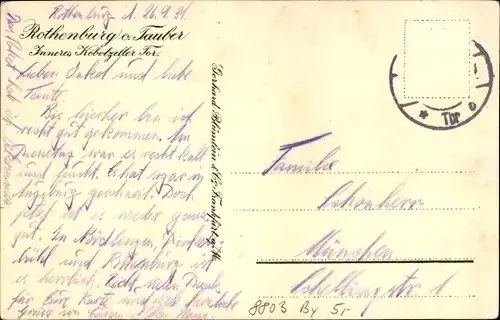 Rothenburg d. 26.9.31.
Rothenburg o. Tauber
Inneres Kobolzeller Tor.
Lieber Onkel und liebe
Tante,
Bis hierher bin ich
recht gut gekommen. Am
Dienstag war es recht kalt
und feucht. Es hat sogar in
Augsburg geschneit. Doch
jetzt ist es wieder ganz
gut. In Nördlingen, Dinkels-
bühl und Rothenburg ist
es herrlich. Recht vielen Dank
für Eure Karte und viele herzliche
Grüsse von Eurem
Gerhard Blümlein & Co., Frankfurt a/M.
Tor
Familie
Schönherr
München
Schellingstr. 1
8803 By 5,-